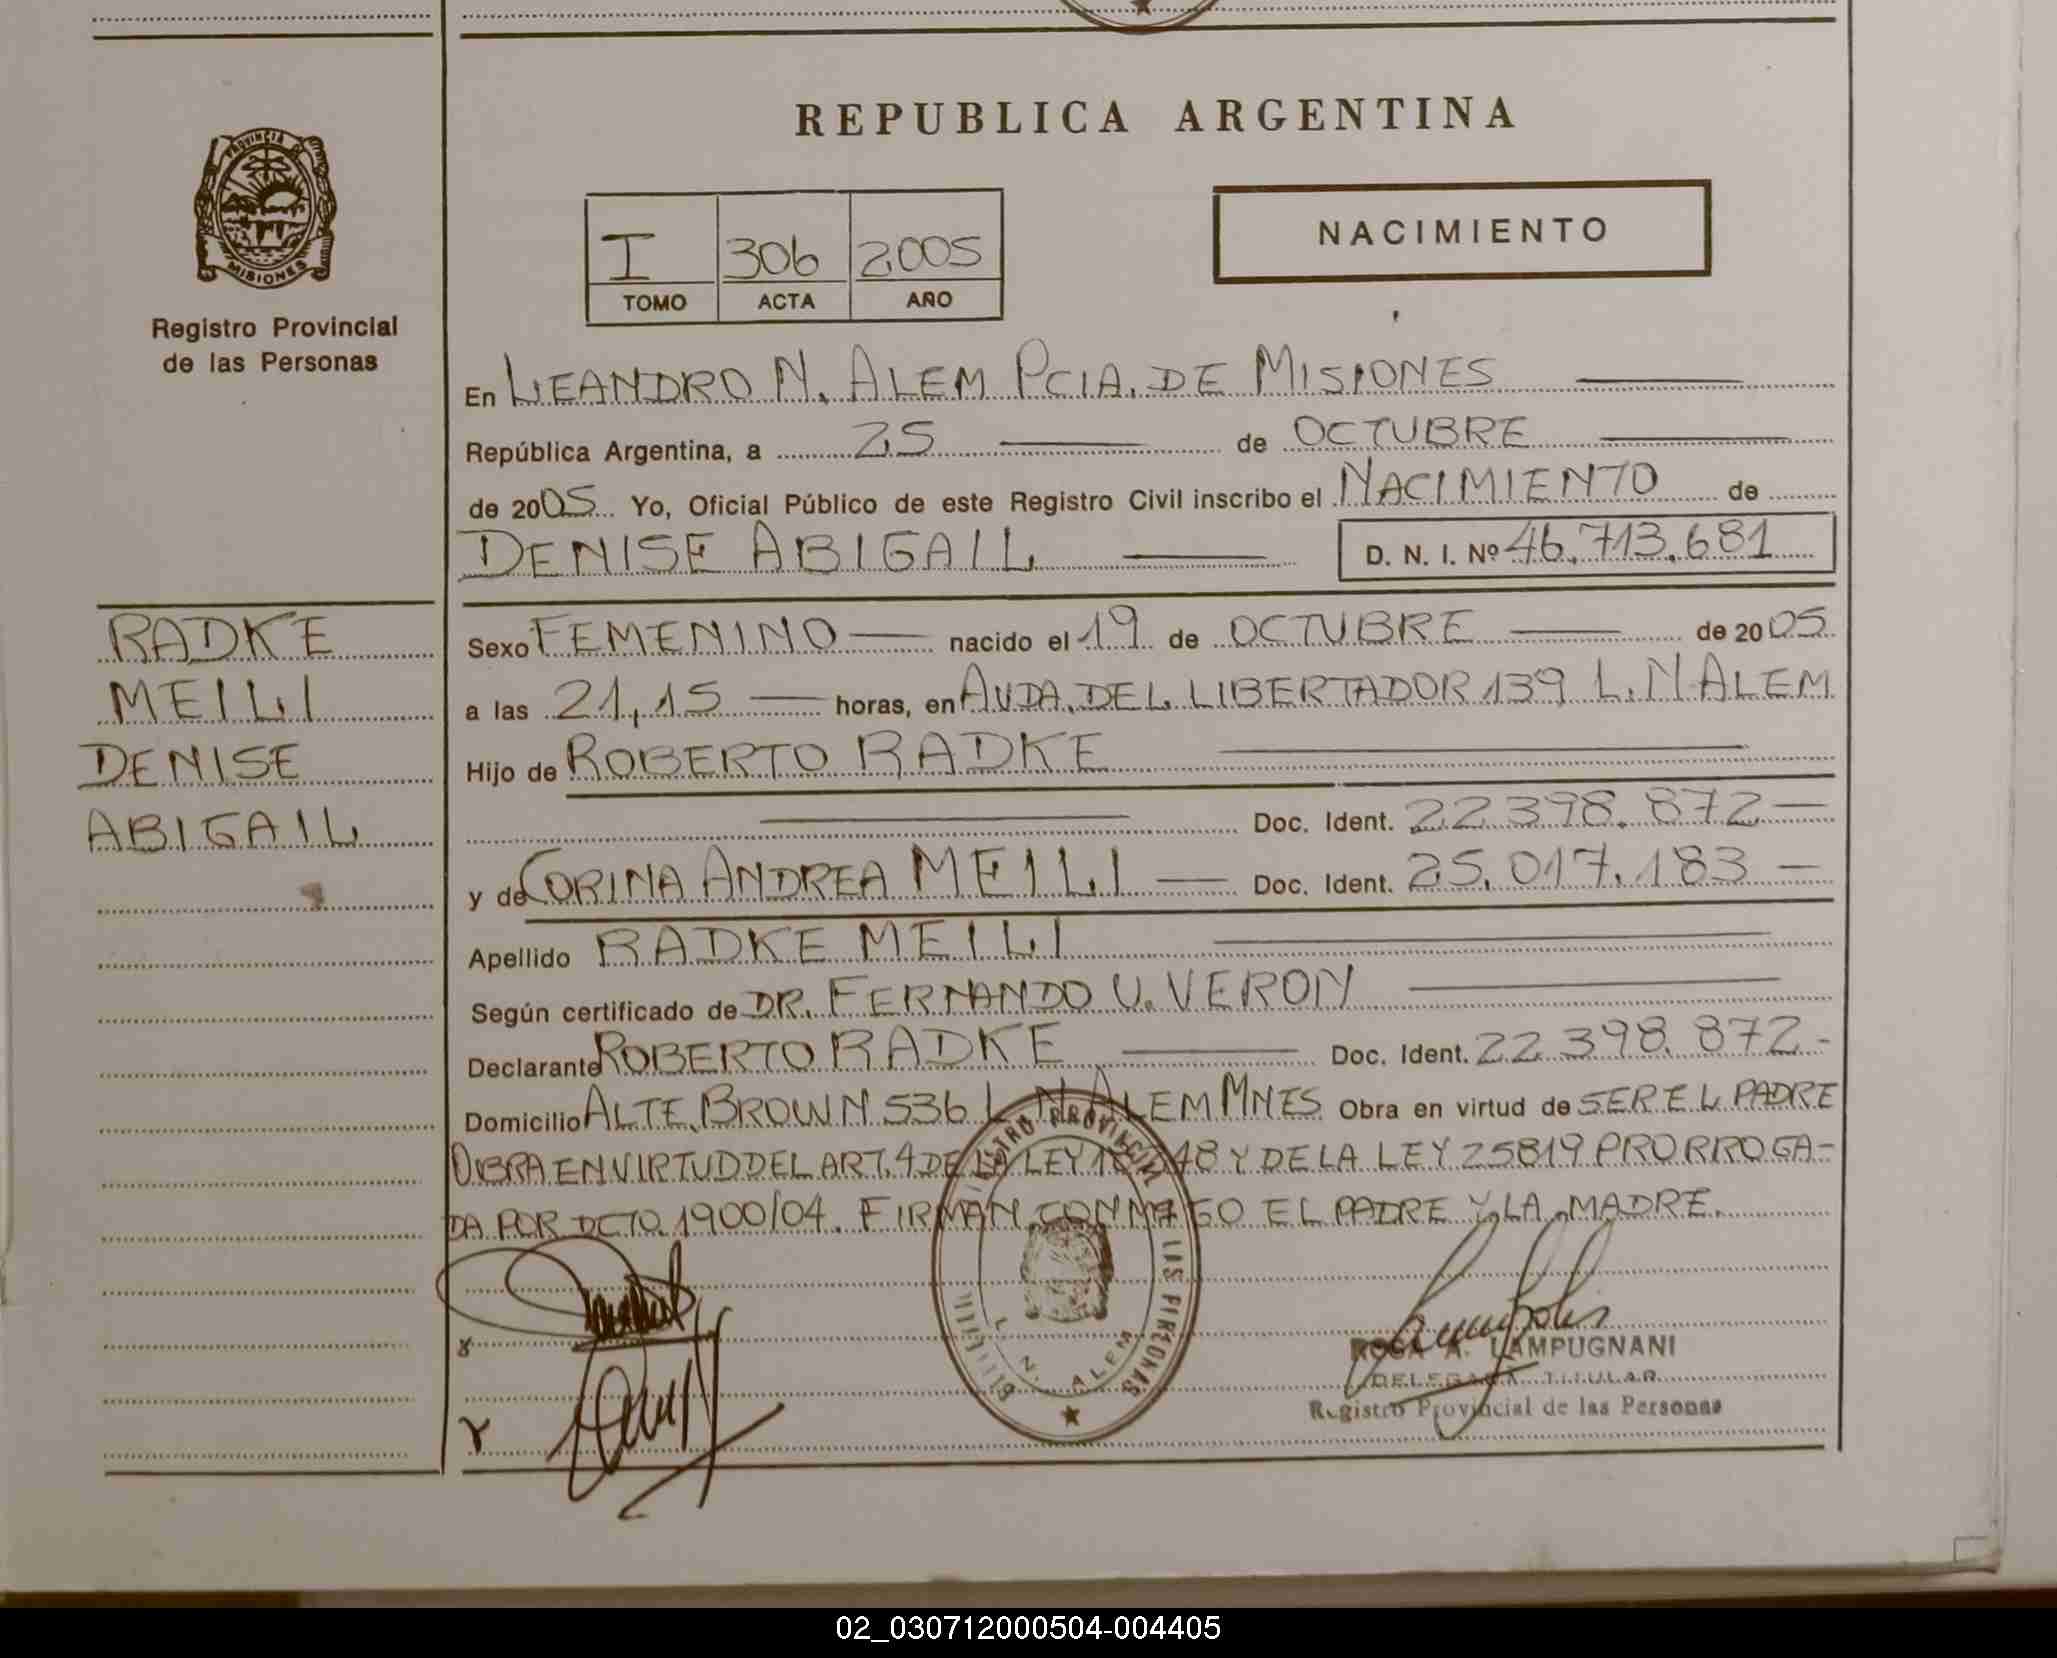 REPUBLICA ARGENTINA
PROVINCIA DE
MISIONES
Registro Provincial
de las Personas
I 306 2005
TOMO ACTA AÑO
NACIMIENTO
En LEANDRO N. ALEM PCIA. DE MISIONES
República Argentina, a 25 de OCTUBRE
de 2005 Yo, Oficial Público de este Registro Civil inscribo el NACIMIENTO de
DENISE ABIGAIL D. N. I. Nº 46.713.681
RADKE
MEILI
DENISE
ABIGAIL
Sexo FEMENINO nacido el 19 de OCTUBRE de 2005
a las 21,15 horas, en AVDA. DEL LIBERTADOR 139 L. N. ALEM
Hijo de ROBERTO RADKE
Doc. Ident. 22.398.872
y de CORINA ANDREA MEILI Doc. Ident. 25.017.183
Apellido RADKE MEILI
Según certificado de DR. FERNANDO V. VERON
Declarante ROBERTO RADKE Doc. Ident. 22.398.872
Domicilio ALTE. BROWN 536 L. N. ALEM MNES Obra en virtud de SER EL PADRE
OBRA EN VIRTUD DEL ART. 4 DE LA LEY Y DE LA LEY 25819 PRORROGA-
DA POR DCTO. 1900/04. FIRMAN CONMIGO EL PADRE Y LA MADRE.
REGISTRO PROVINCIAL DE LAS PERSONAS
L. N. ALEM
ROSA A. LAMPUGNANI
DELEGADA TITULAR
Registro Provincial de las Personas
02_030712000504-004405